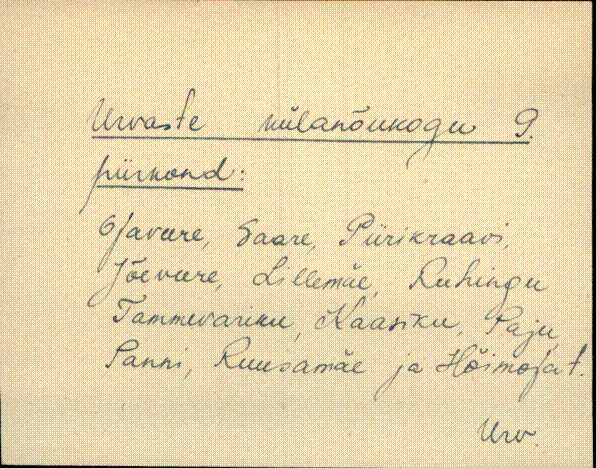 Urvaste külanõukogu 9.
piirkond:
Ojaveere, Saare, Piirikraavi,
Jõeveere, Lillemäe, Ruhingu
Tammevariku, Kaasiku, Paju,
Panni, Ruusamäe ja Hõimojat.
Urv.